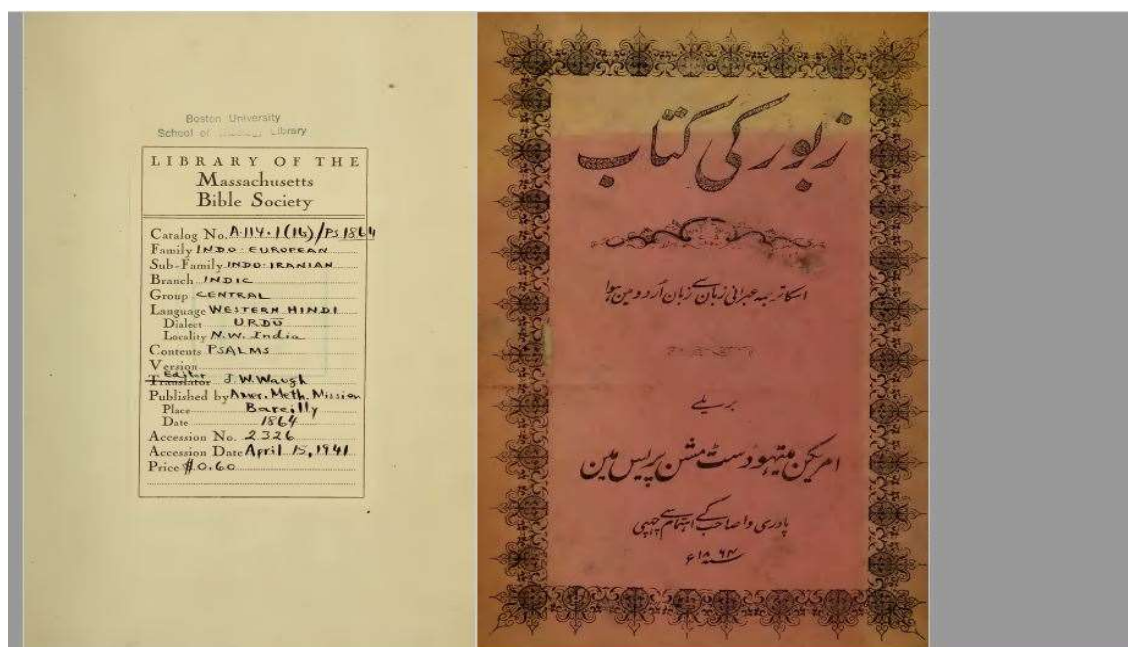 Boston University
School of Library
LIBRARY OF THE
Massachusetts
Bible Society
Catalog No. A.114.1(16)/PS 1864
Family INDO-EUROPEAN
Sub-Family INDO-IRANIAN
Branch INDIC
Group CENTRAL
Language WESTERN HINDI
Dialect URDŪ
Locality N.W. India
Contents PSALMS
Version
Editor
Translator J. W. Waugh
Published by Amer. Meth. Mission
Place Bareilly
Date 1864
Accession No. 2326
Accession Date April 15, 1941
Price $0.60
زبور کی کتاب
اسکا ترجمہ عبرانی زبان سے زبان اردو مین ہوا
بریلے
امریکن میتہودست مشن پریس مین
پادری وا صاحب کے اہتمام سے چھپی
سنہ ۱۸۶۴ ع